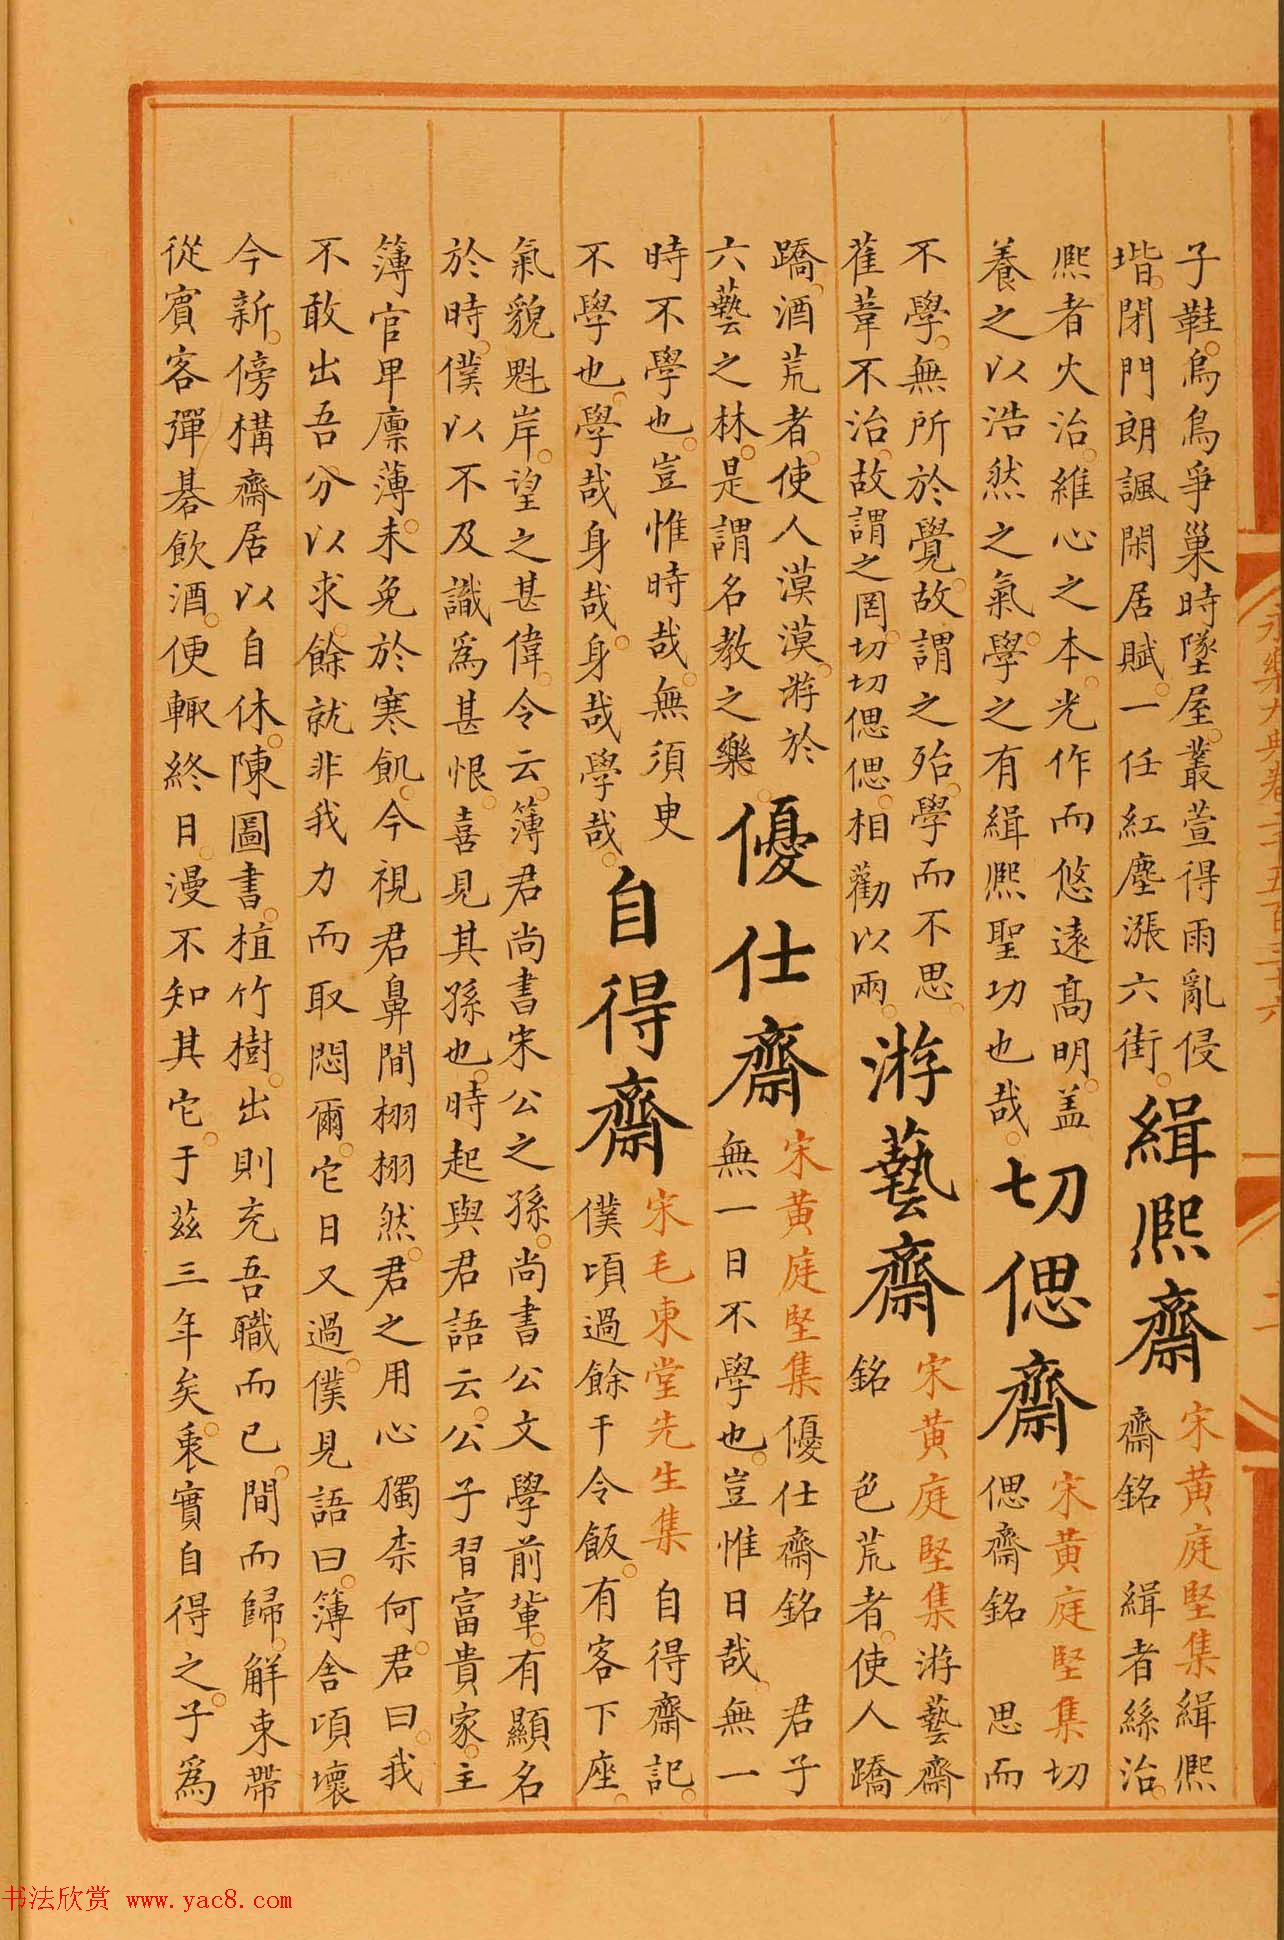 子鞋。烏鳥爭巢時墜屋。叢萱得雨亂侵
堦。閉門朗諷閑居賦。一任紅塵漲六街。
緝熙齋
宋黃庭堅集
緝熙
齋銘 緝者絲治。
熙者火治。維心之本。光作而悠遠高明。蓋
養之以浩然之氣。學之有緝熙聖功也哉。
切偲齋
宋黃庭堅集
切
偲齋銘 思而
不學。無所於覺。故謂之殆。學而不思。
萑葦不治。故謂之罔。切切偲偲。相勸以兩。
游藝齋
宋黃庭堅集
游藝齋
銘 色荒者。使人蹻
蹻。酒荒者。使人漠漠。游於
六藝之林。是謂名教之樂。
優仕齋
宋黃庭堅集
優仕齋銘 君子
無一日不學也。豈惟日哉。無一
時不學也。豈惟時哉。無須臾
不學也。學哉身哉。身哉學哉。
自得齋
宋毛東堂先生集
自得齋記。
僕頃過餘干令飯。有客下座。
氣貌魁岸。望之甚偉。令云。簿君尚書宋公之孫。尚書公文學前輩。有顯名
於時。僕以不及識為甚恨。喜見其孫也。時起與君語云。公子習富貴家。主
簿官卑廩薄。未免於寒飢。今視君鼻間栩栩然。君之用心獨柰何。君曰。我
不敢出吾分以求。餘就非我力而取悶爾。它日又過。僕見語曰。簿舍頃壞
今新。傍構齋居以自休。陳圖書。植竹樹。出則充吾職而已。間而歸。解束帶
從賓客彈棊飲酒。便輒終日。漫不知其它。于茲三年矣。秉實自得之。子為
书法欣赏 www.yac8.com